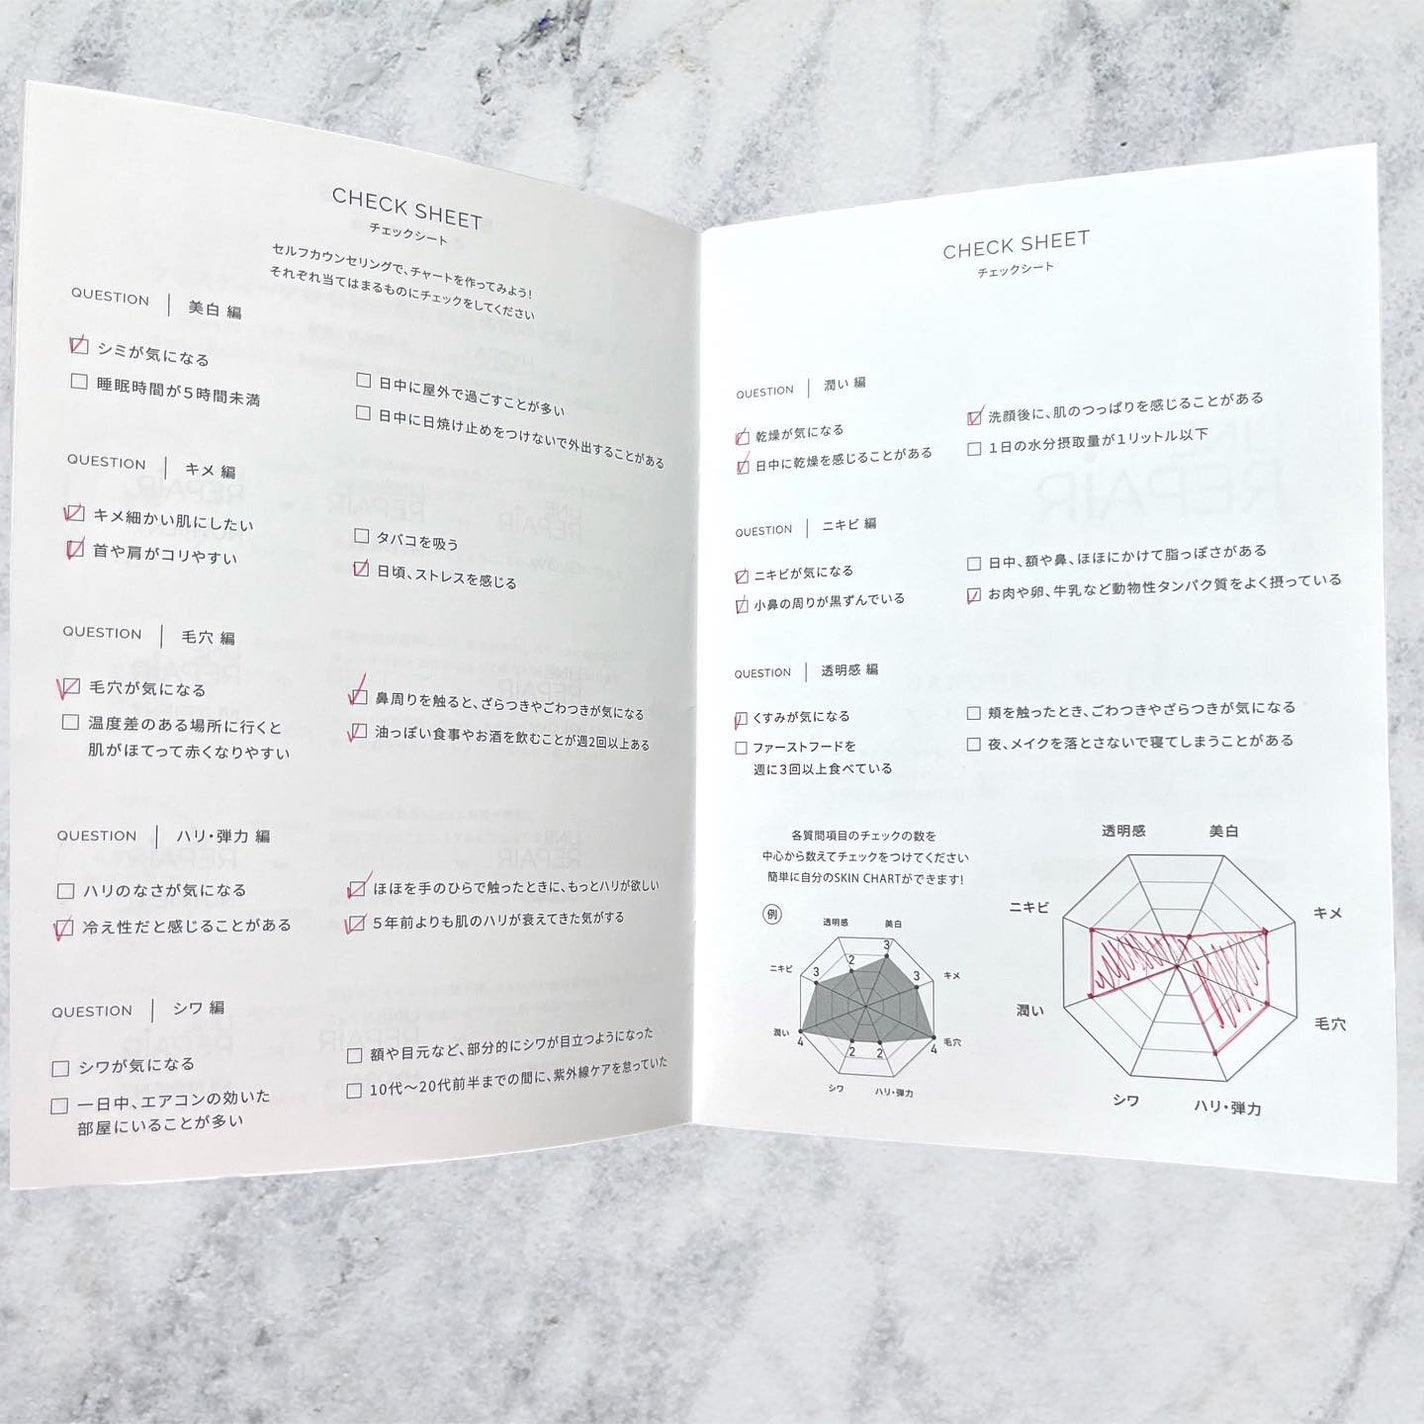 CHECK SHEET
チェックシート
セルフカウンセリングで、チャートを作ってみよう!
それぞれ当てはまるものにチェックをしてください
QUESTION | 美白 編
シミが気になる
睡眠時間が5時間未満
日中に屋外で過ごすことが多い
日中に日焼け止めをつけないで外出することがある
QUESTION | キメ 編
キメ細かい肌にしたい
首や肩がコリやすい
タバコを吸う
日頃、ストレスを感じる
QUESTION | 毛穴 編
毛穴が気になる
温度差のある場所に行くと
肌がほてって赤くなりやすい
鼻周りを触ると、ざらつきやごわつきが気になる
油っぽい食事やお酒を飲むことが週2回以上ある
QUESTION | ハリ・弾力 編
ハリのなさが気になる
冷え性だと感じることがある
ほほを手のひらで触ったときに、もっとハリが欲しい
5年前よりも肌のハリが衰えてきた気がする
QUESTION | シワ 編
シワが気になる
一日中、エアコンの効いた
部屋にいることが多い
額や目元など、部分的にシワが目立つようになった
10代〜20代前半までの間に、紫外線ケアを怠っていた
CHECK SHEET
チェックシート
QUESTION | 潤い 編
乾燥が気になる
日中に乾燥を感じることがある
洗顔後に、肌のつっぱりを感じることがある
1日の水分摂取量が1リットル以下
QUESTION | ニキビ 編
ニキビが気になる
小鼻の周りが黒ずんでいる
日中、額や鼻、ほほにかけて脂っぽさがある
お肉や卵、牛乳など動物性タンパク質をよく摂っている
QUESTION | 透明感 編
くすみが気になる
ファーストフードを
週に3回以上食べている
頬を触ったとき、ごわつきやざらつきが気になる
夜、メイクを落とさないで寝てしまうことがある
各質問項目のチェックの数を
中心から数えてチェックをつけてください
簡単に自分のSKIN CHARTができます!
例
透明感
美白
キメ
毛穴
ハリ・弾力
シワ
潤い
ニキビ
2
3
3
4
2
2
4
3
透明感
美白
キメ
毛穴
ハリ・弾力
シワ
潤い
ニキビ